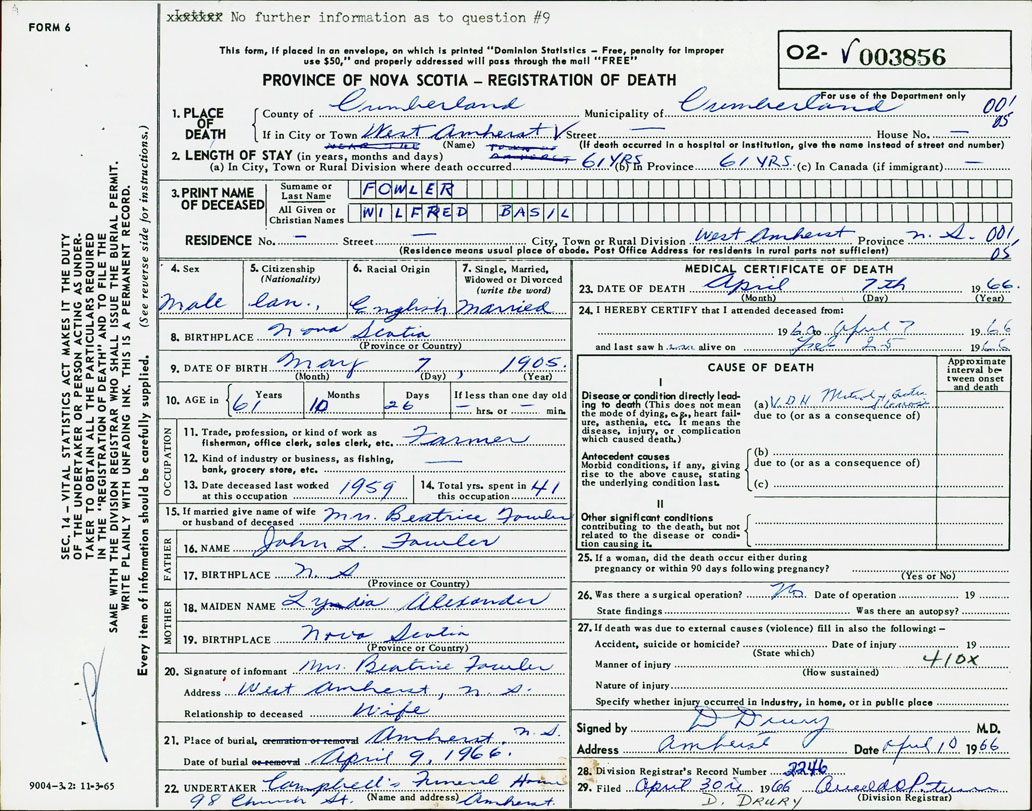 FORM 6
xLetter No further information as to question #9
This form, if placed in an envelope, on which is printed "Dominion Statistics – Free, penalty for improper
use $50," and properly addressed will pass through the mail "FREE"
PROVINCE OF NOVA SCOTIA – REGISTRATION OF DEATH
O2- √ 003856
For use of the Department only
001
05
1. PLACE OF DEATH
County of Cumberland Municipality of Cumberland
If in City or Town West Amherst √ Street — House No. —
(Name) (If death occurred in a hospital or institution, give the name instead of street and number)
2. LENGTH OF STAY (in years, months and days)
(a) In City, Town or Rural Division where death occurred 61 YRS (b) In Province 61 YRS. (c) In Canada (if immigrant) —
3. PRINT NAME OF DECEASED
Surname or Last Name FOWLER
All Given or Christian Names WILFRED BASIL
RESIDENCE No. — Street — City, Town or Rural Division West Amherst Province N. S. 001
(Residence means usual place of abode. Post Office Address for residents in rural parts not sufficient) 05
4. Sex Male
5. Citizenship (Nationality) Can.
6. Racial Origin English
7. Single, Married, Widowed or Divorced (write the word) Married
8. BIRTHPLACE Nova Scotia
(Province or Country)
9. DATE OF BIRTH May 7, 1905.
(Month) (Day) (Year)
10. AGE in 61 Years 10 Months 26 Days If less than one day old — hrs. or — min.
OCCUPATION
11. Trade, profession, or kind of work as
fisherman, office clerk, sales clerk, etc. Farmer
12. Kind of industry or business, as fishing,
bank, grocery store, etc. —
13. Date deceased last worked at this occupation 1959
14. Total yrs. spent in this occupation 41
15. If married give name of wife or husband of deceased Mrs. Beatrice Fowler
FATHER
16. NAME John L. Fowler
17. BIRTHPLACE N. S
(Province or Country)
MOTHER
18. MAIDEN NAME Lyndia Alexander
19. BIRTHPLACE Nova Scotia
(Province or Country)
20. Signature of informant Mrs. Beatrice Fowler
Address West Amherst, N. S.
Relationship to deceased Wife
21. Place of burial, cremation or removal Amherst N. S.
Date of burial or removal April 9, 1966.
22. UNDERTAKER Campbell's Funeral Home
98 Church St. (Name and address) Amherst.
MEDICAL CERTIFICATE OF DEATH
23. DATE OF DEATH April 7th 1966.
(Month) (Day) (Year)
24. I HEREBY CERTIFY that I attended deceased from:
1960 to April 7 1966
and last saw him alive on 25 1966
CAUSE OF DEATH
Approximate interval between onset and death
I
Disease or condition directly leading to death (This does not mean
the mode of dying, e.g., heart failure, asthenia, etc. It means the
disease, injury, or complication
which caused death.)
(a) V.D.H
due to (or as a consequence of)
Antecedent causes
Morbid conditions, if any, giving
rise to the above cause, stating
the underlying condition last.
(b)
due to (or as a consequence of)
(c)
II
Other significant conditions
contributing to the death, but not
related to the disease or condition causing it.
25. If a woman, did the death occur either during
pregnancy or within 90 days following pregnancy?
(Yes or No)
26. Was there a surgical operation? No. Date of operation 19
State findings Was there an autopsy?
27. If death was due to external causes (violence) fill in also the following: –
Accident, suicide or homicide? Date of injury 19
(State which) 410x
Manner of injury
(How sustained)
Nature of injury
Specify whether injury occurred in industry, in home, or in public place
Signed by D Drury M.D.
Address Amherst Date April 10 1966
28. Division Registrar's Record Number 2246
29. Filed April 30th 1966
D. DRURY (Division Registrar)
SEC. 14 – VITAL STATISTICS ACT MAKES IT THE DUTY
OF THE UNDERTAKER OR PERSON ACTING AS UNDERTAKER
TO OBTAIN ALL THE PARTICULARS REQUIRED
IN THE "REGISTRATION OF DEATH" AND TO FILE THE
SAME WITH THE DIVISION REGISTRAR WHO SHALL ISSUE THE BURIAL PERMIT.
WRITE PLAINLY WITH UNFADING INK. THIS IS A PERMANENT RECORD.
Every item of information should be carefully supplied. (See reverse side for instructions.)
9004–3.2: 11-3-65